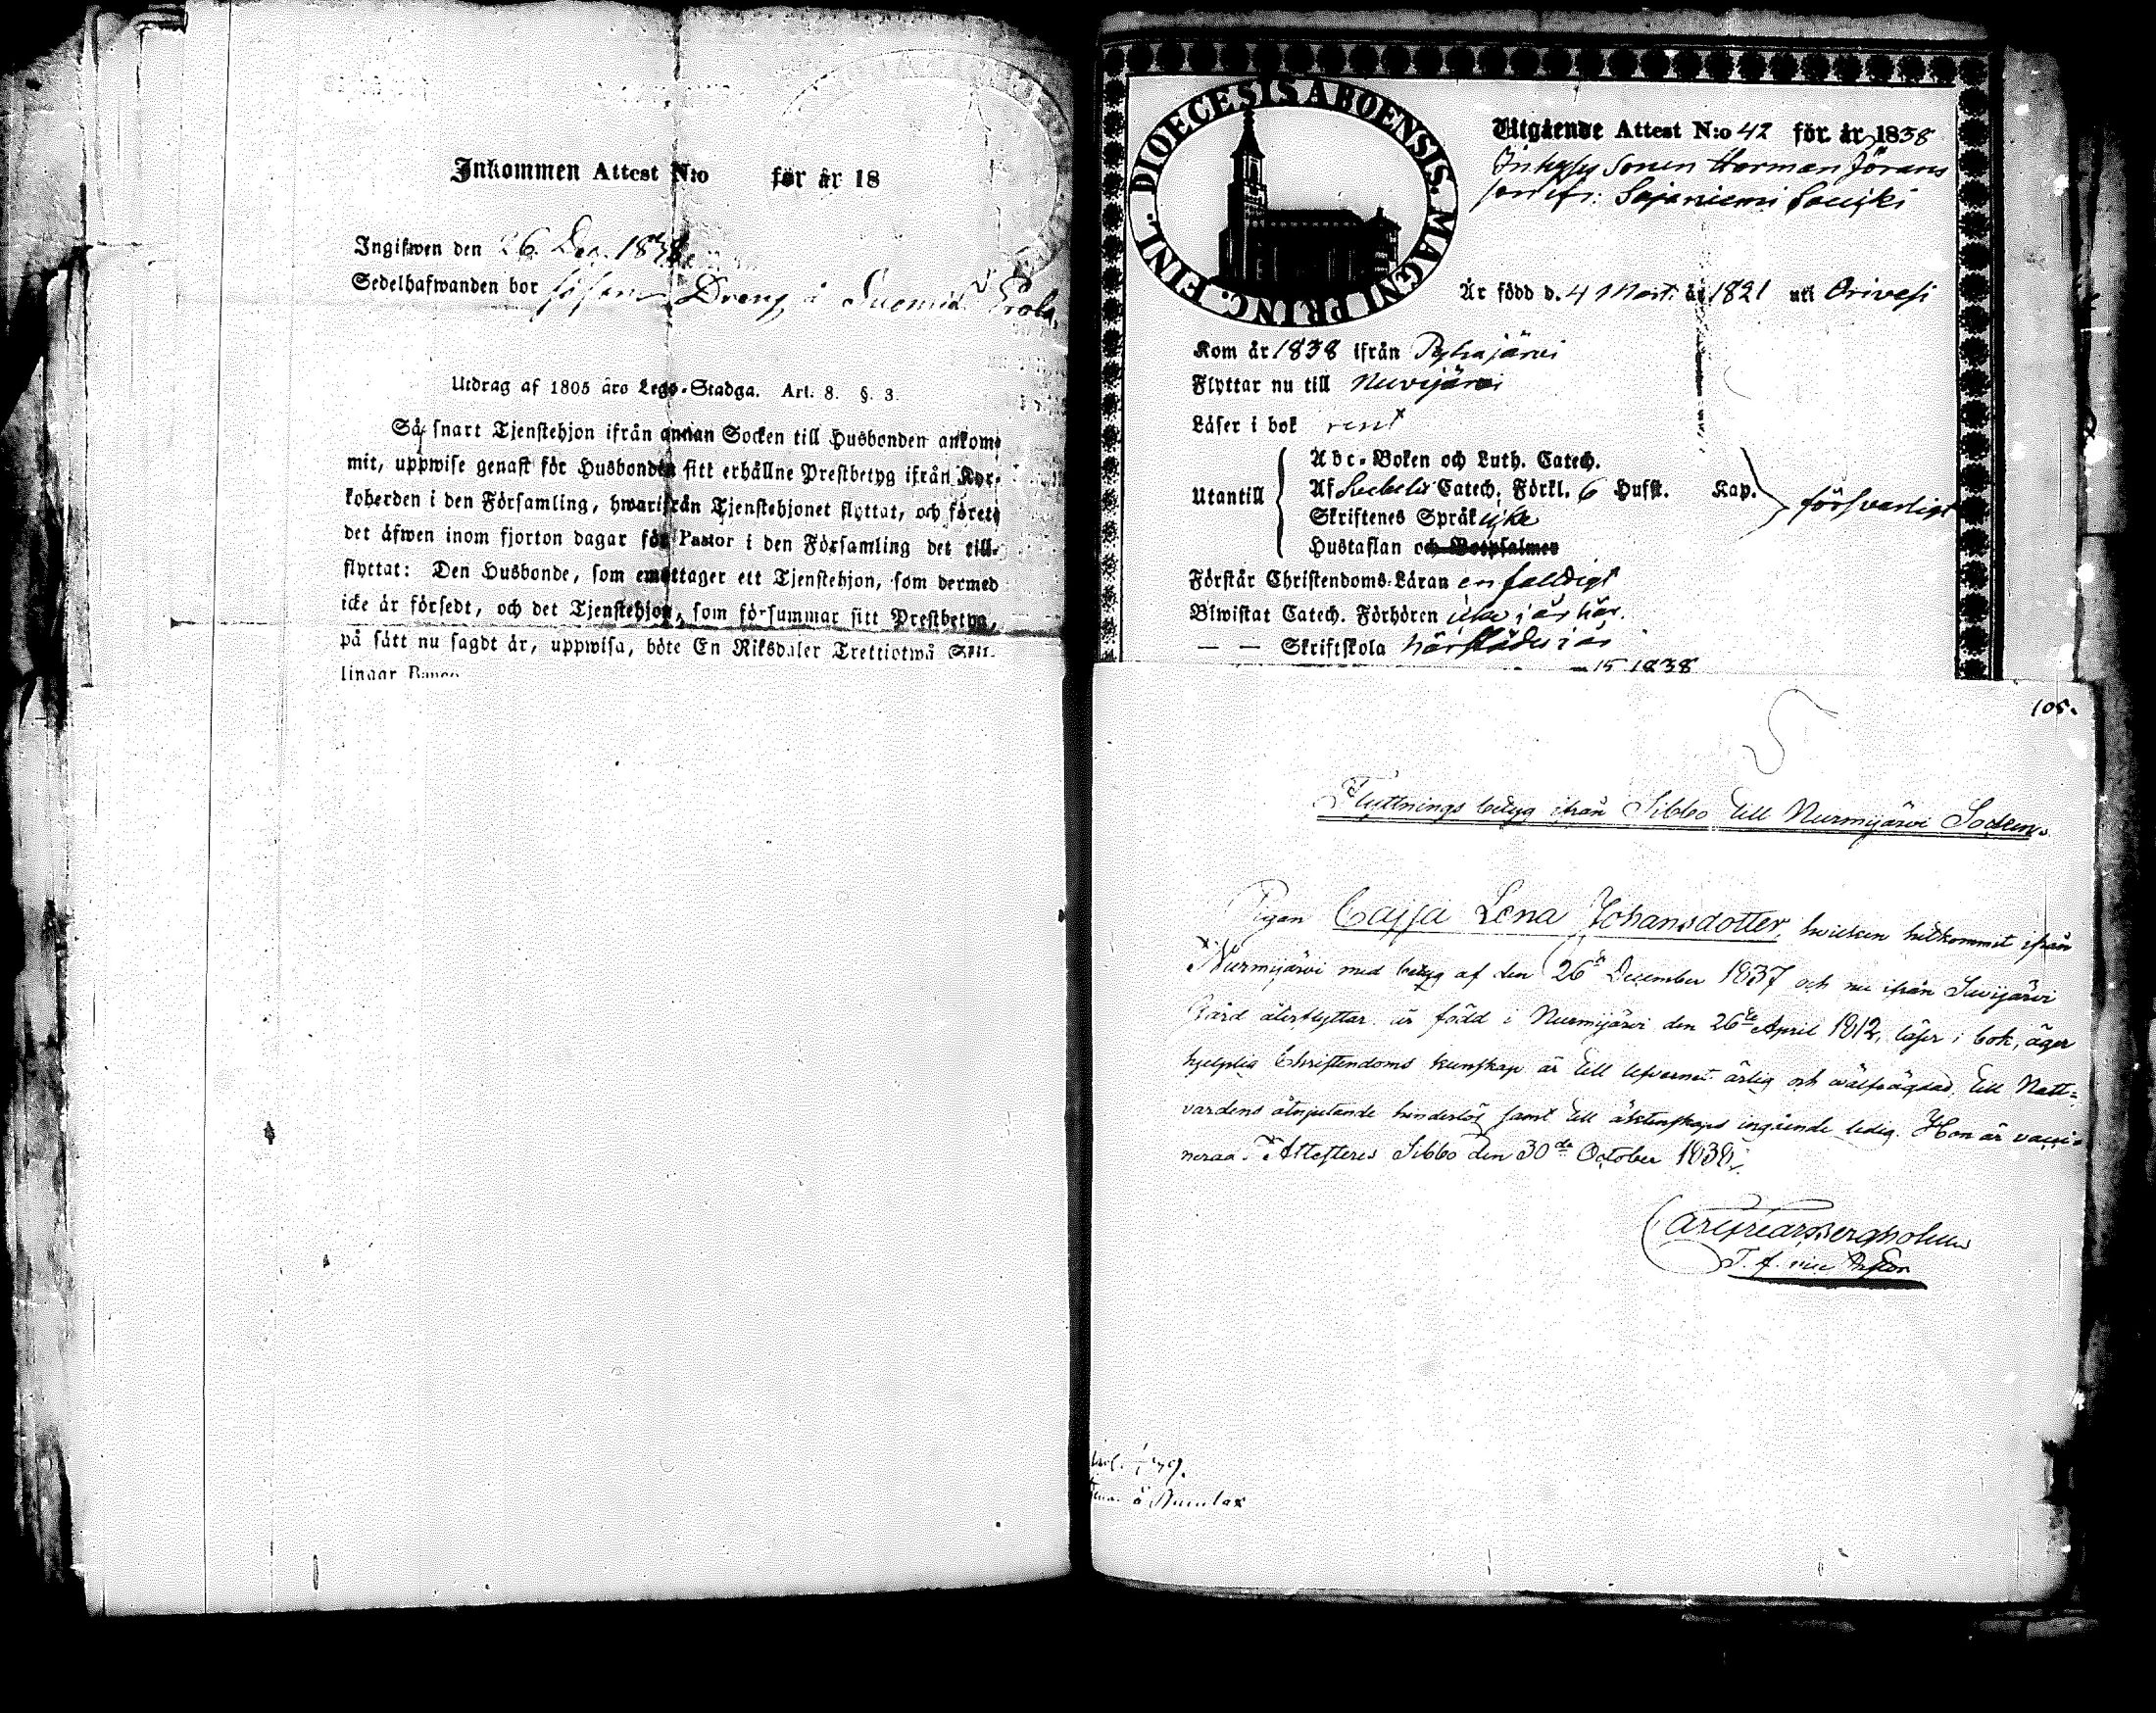 Inkommen Attest N:o för år 18
Ingifwen den 26. Dec. 1838
Sedelhafwanden bor såsom Dreng å
Utdrag af 1805 års Lego-Stadga. Art. 8. §. 3.
Så snart Tjenstehjon ifrån annan Socken till Husbonden ankom-
mit, uppwise genast för Husbonden sitt erhållne Prestbetyg ifrån Kyr-
koherden i den Församling, hwarifrån Tjenstehjonet flyttat, och förete
det äfwen inom fjorton dagar för Pastor i den Församling det till-
flyttat: Den Husbonde, som emottager ett Tjenstehjon, som dermed
icke är försedt, och det Tjenstehjon, som försummar sitt Prestbetyg,
på sätt nu sagdt är, uppwisa, böte En Riksdaler Trettiotwå Skil-
lingar Banco
FINL. DIOECESIS ABOENSIS. MAGNI PRINC.
Utgående Attest N:o 42 för år 1838
Sonen Herman Jörans
Sajaniemi
Är född d. 4 Mart. år 1821 uti Orivesi
Kom år 1838 ifrån Pyhajärvi
Flyttar nu till
Läser i bok rent
Utantill
Abc-Boken och Luth. Catech.
Af Svebelii Catech. Förkl. 6 Hufst. Kap.
försvarligt
Skriftenes Språk icke
Hustaflan och Botpsalmer
Förstår Christendoms-Läran enfaldigt
Biwistat Catech. Förhören icke i år här.
— — Skriftskola härstädes i år
15 1838
105.
Flyttnings betyg ifrån Sibbo till Nurmijärvi Socken.
Pigan Cajsa Lena Johansdotter, hvilken hitkommit ifrån
Nurmijärvi med betyg af den 26 December 1837 och nu ifrån Savijärvi
Gård återflyttar är född i Nurmijärvi den 26te April 1812, läser i bok, äger
hjelplig Christendoms kunskap är till lefvernet ärlig och välfrägdad, till Natt-
vardens åtnjutande hinderlös samt till äktenskaps ingående ledig. Hon är vacci-
nerad. Attesteras Sibbo den 30de October 1838.
Bergholm
T. f. vice Pastor